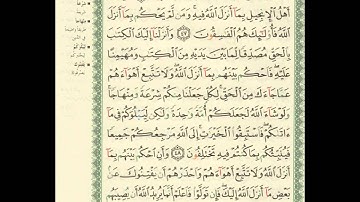 أَهْلُ ٱلْإِنجِيلِ بِمَآ أَنزَلَ ٱللَّهُ فِيهِ وَمَن لَّمْ يَحْكُم بِمَآ أَنزَلَ
ٱللَّهُ فَأُو۟لَٰٓئِكَ هُمُ ٱلْفَٰسِقُونَ ٤٧ وَأَنزَلْنَآ إِلَيْكَ ٱلْكِتَٰبَ
بِٱلْحَقِّ مُصَدِّقًا لِّمَا بَيْنَ يَدَيْهِ مِنَ ٱلْكِتَٰبِ وَمُهَيْمِنًا
عَلَيْهِ فَٱحْكُم بَيْنَهُم بِمَآ أَنزَلَ ٱللَّهُ وَلَا تَتَّبِعْ أَهْوَآءَهُمْ
عَمَّا جَآءَكَ مِنَ ٱلْحَقِّ لِكُلٍّ جَعَلْنَا مِنكُمْ شِرْعَةً وَمِنْهَاجًا
وَلَوْ شَآءَ ٱللَّهُ لَجَعَلَكُمْ أُمَّةً وَٰحِدَةً وَلَٰكِن لِّيَبْلُوَكُمْ فِى مَآ
ءَاتَىٰكُمْ فَٱسْتَبِقُوا۟ ٱلْخَيْرَٰتِ إِلَى ٱللَّهِ مَرْجِعُكُمْ جَمِيعًا
فَيُنَبِّئُكُم بِمَا كُنتُمْ فِيهِ تَخْتَلِفُونَ ٤٨ وَأَنِ ٱحْكُم بَيْنَهُم بِمَآ
أَنزَلَ ٱللَّهُ وَلَا تَتَّبِعْ أَهْوَآءَهُمْ وَٱحْذَرْهُمْ أَن يَفْتِنُوكَ عَنۢ
بَعْضِ مَآ أَنزَلَ ٱللَّهُ إِلَيْكَ فَإِن تَوَلَّوْا۟ فَٱعْلَمْ أَنَّمَا يُرِيدُ ٱللَّهُ أَن يُصِيبَهُم